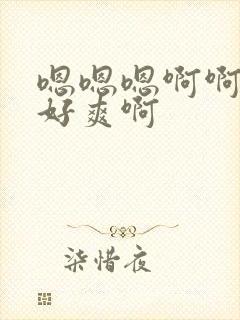 嗯嗯嗯啊啊
好爽啊
柒惜夜